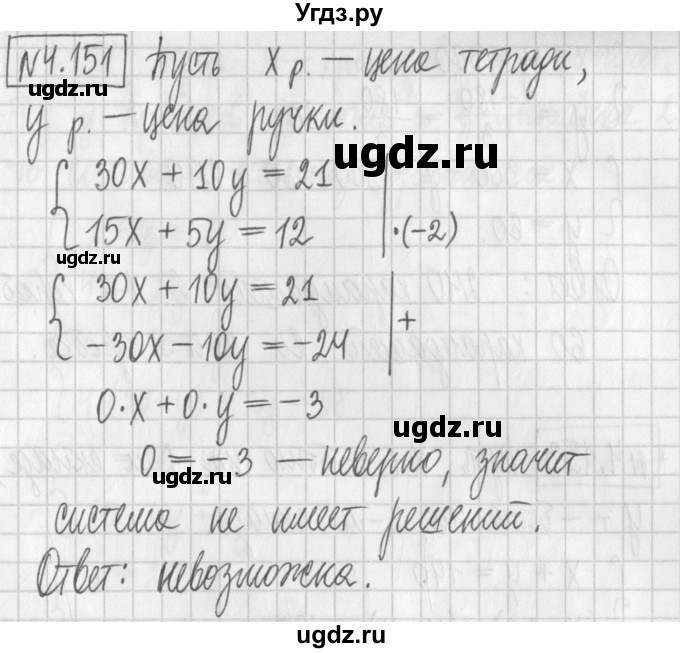 Угдз.ру
№4.151 Пусть x р. — цена тетради,
y р. — цена ручки.
ugdz.ru
30x + 10y = 21
15x + 5y = 12 | ·(-2)
ugdz.ru
30x + 10y = 21
-30x - 10y = -24 | +
0·x + 0·y = -3
ugdz.ru
0 = -3 — неверно, значит
ugdz.ru
система не имеет решений.
ugdz.ru
Ответ: невозможна.
ugdz.ru